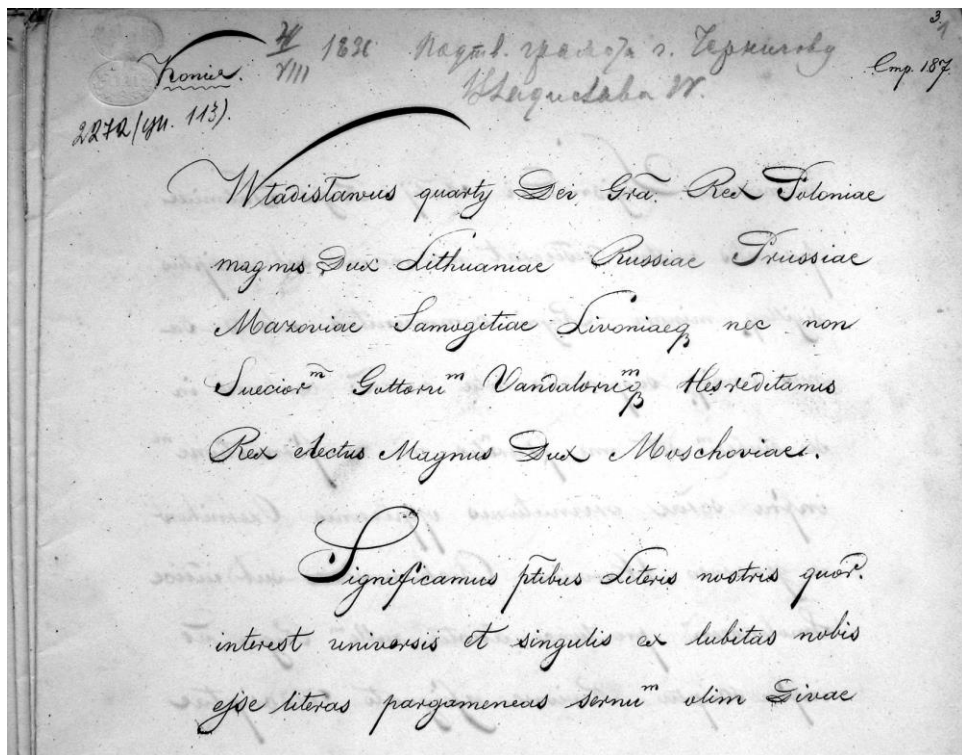 3.
1
Konia.
2272 (уп. 113).
21/VIII 1636 Подтв. грамота г. Чернигову
Владислава IV.
Стр. 187
Wladislawus quarty Dei Grã. Rex Poloniae
magnus Dux Lithuaniae Russiae Prussiae
Mazoviae Samogitiae Livoniaeq nec non
Suecior^m Gottoru^m Vandaloru^mq Hesreditamis
Rex electus Magnus Dux Moschoviae.
Significamus p̃tibus Literis nostris quor̃.
interest universis et singulis ex lubitas nobis
esse literas pargameneas sernu^m olim Divae